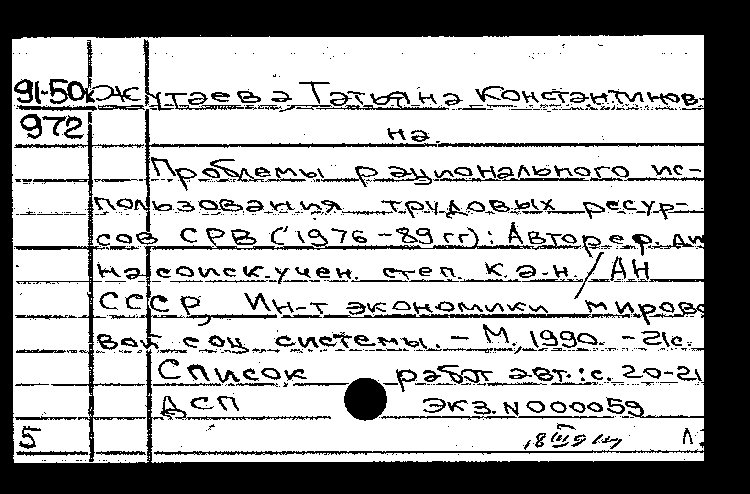 91-50 Жутаева Татьяна Константинов-
972 на.
Проблемы рационального ис-
пользования трудовых ресур-
сов СРВ (1976-89 гг): Автореф. ди
на соиск. учен. степ. к.э.н. / АН
СССР, Ин-т экономики мирово
вой соц системы. - М., 1990. - 21с.
Список работ авт.: с. 20-21
ДСП экз. N 000059
5